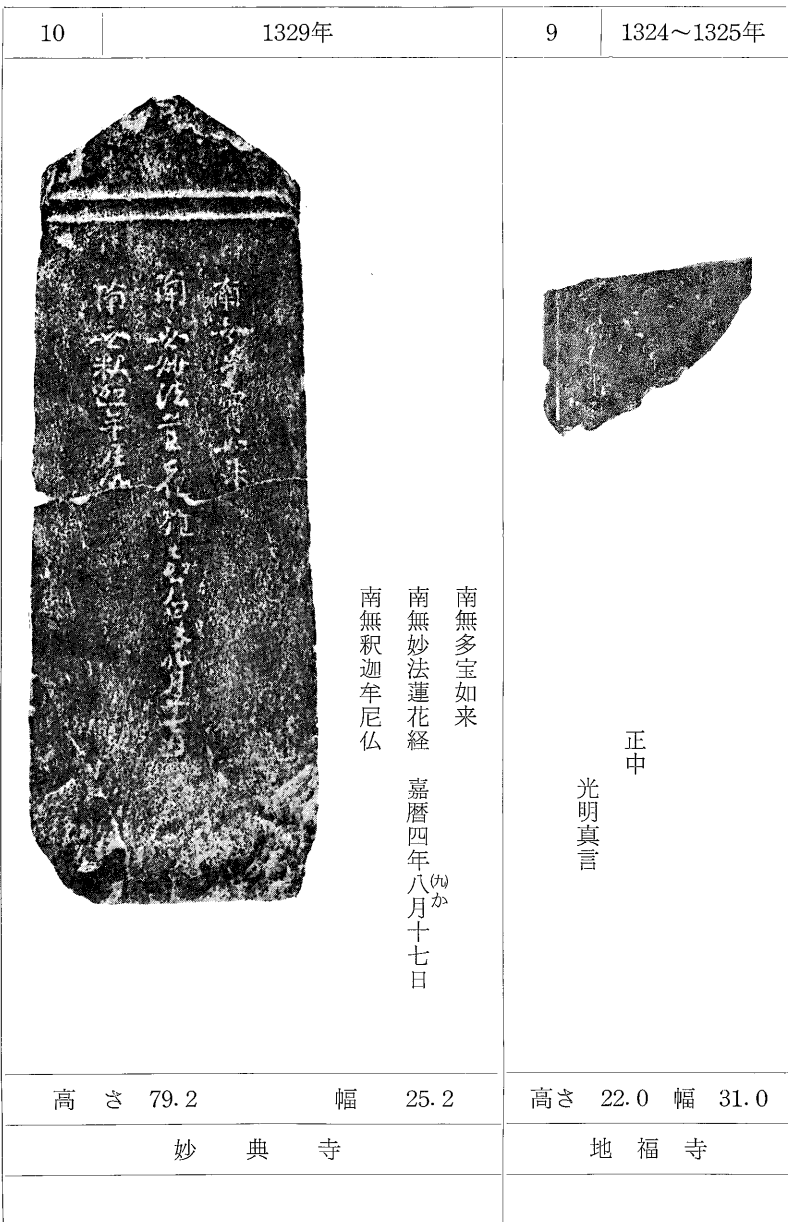 9
1324～1325年
正中
光明真言
高さ 22.0 幅 31.0
地福寺
10
1329年
南無多宝如来
南無妙法蓮花経 嘉暦四年八(九か)月十七日
南無釈迦牟尼仏
高さ 79.2 幅 25.2
妙典寺